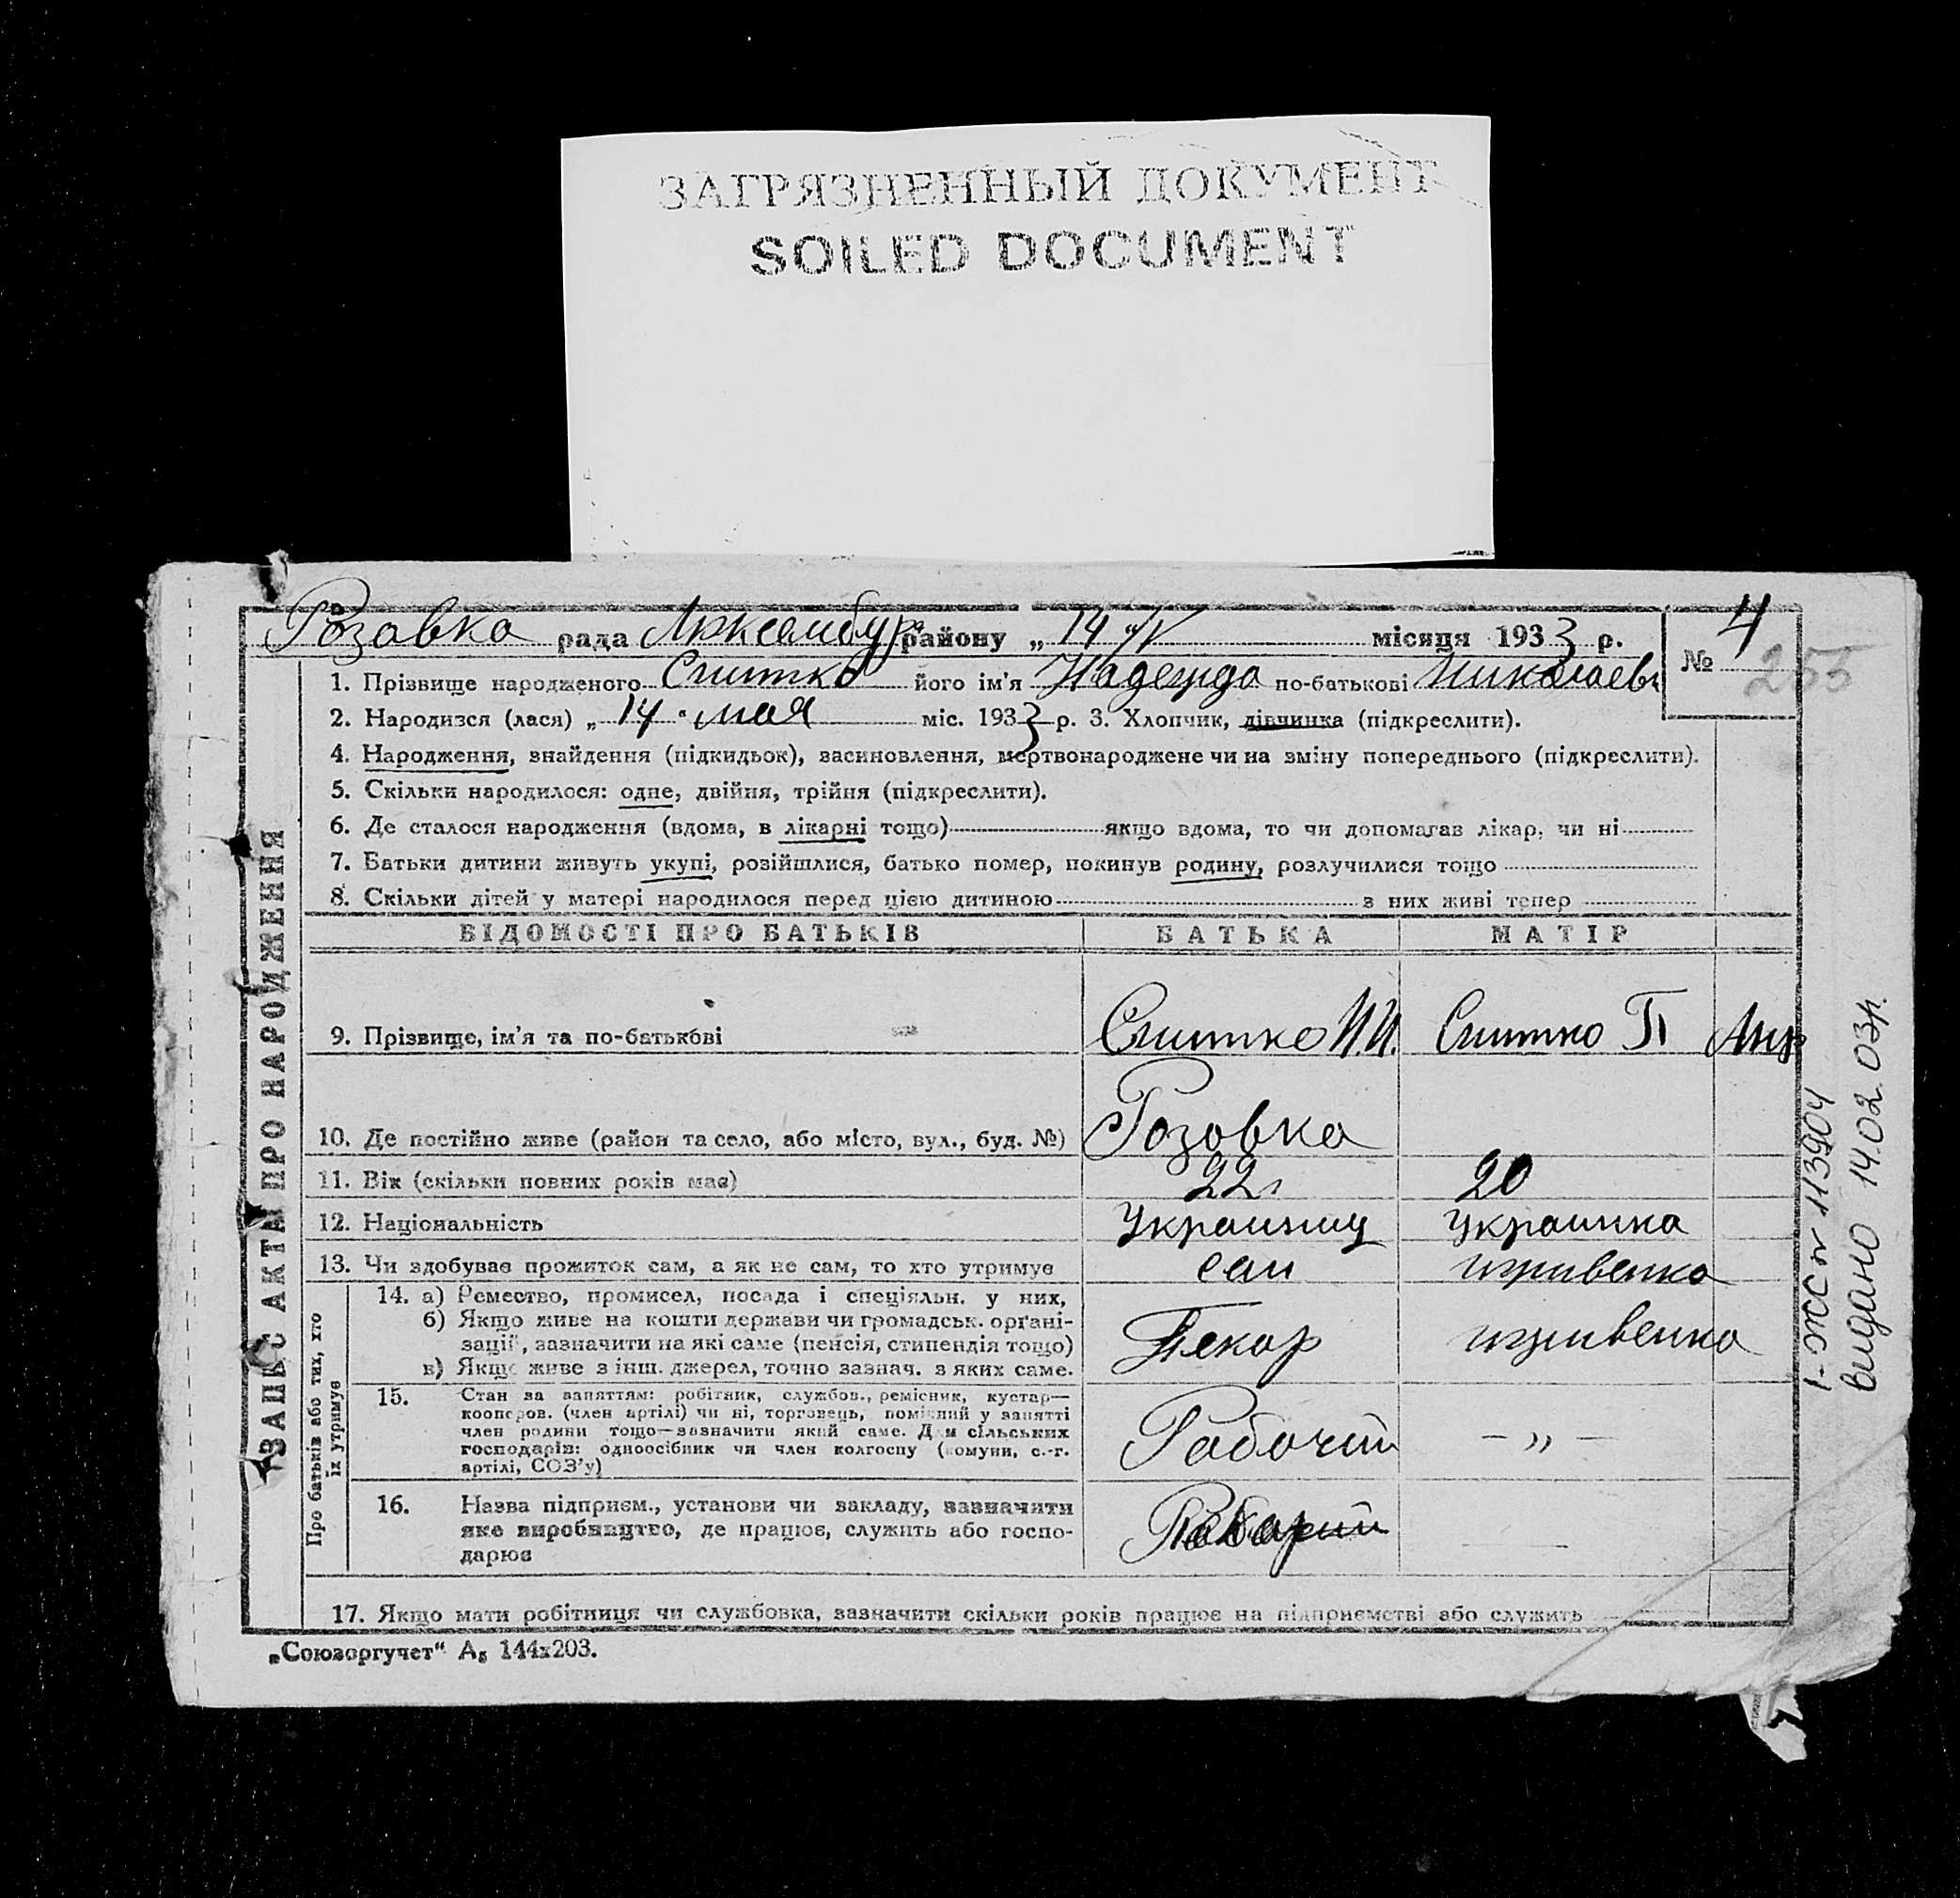 ЗАГРЯЗНЕННЫЙ ДОКУМЕНТ
SOILED DOCUMENT
Розовка рада Люксембур району „14 "V місяця 1933 р.
№ 4
255
1. Прізвище народженого Снитко його ім'я Надежда по-батькові Николаевн
2. Народився (лася) „14 " мая міс. 1933 р. 3. Хлопчик, дівчинка (підкреслити).
4. Народження, знайдення (підкидьок), засиновлення, мертвонароджене чи на зміну попереднього (підкреслити).
5. Скільки народилося: одне, двійня, трійня (підкреслити).
6. Де сталося народження (вдома, в лікарні тощо) якщо вдома, то чи допомагав лікар, чи ні
7. Батьки дитини живуть укупі, розійшлися, батько помер, покинув родину, розлучилися тощо
8. Скільки дітей у матері народилося перед цією дитиною з них живі тепер
ВІДОМОСТІ ПРО БАТЬКІВ БАТЬКА МАТІР
9. Прізвище, ім'я та по-батькові Снитко Н.И. Снитко П
10. Де постійно живе (район та село, або місто, вул., буд. №) Розовка
11. Вік (скільки повних років має) 22 20
12. Національність Украинец Украинка
13. Чи здобуває прожиток сам, а як не сам, то хто утримує сам иждивенка
14. а) Ремество, промисел, посада і спеціяльн. у них,
б) Якщо живе на кошти держави чи громадськ. органі-
зації, зазначити на які саме (пенсія, стипендія тощо)
в) Якщо живе з інш. джерел, точно зазнач. з яких саме.
Пекар иждивенка
15. Стан за заняттям: робітник, службов., ремісник, кустар—
кооперов. (член артілі) чи ні, торговець, помічний у занятті
член родини тощо—зазначити який саме. Для сільських
господарів: одноосібник чи член колгоспу (комуни, с.-г.
артілі, СОЗ'у)
Рабочий — „ —
16. Назва підприєм., установи чи закладу, зазначити
яке виробництво, де працює, служить або госпо-
дарює
17. Якщо мати робітниця чи службовка, зазначити скільки років працює на підприємстві або служить
„Союзоргучет" А₅ 144х203.
ЗАПИС АКТА ПРО НАРОДЖЕННЯ
Про батьків або тих, хто
їх утримує
І-ЖС № 113904
видано 14.02.03р.